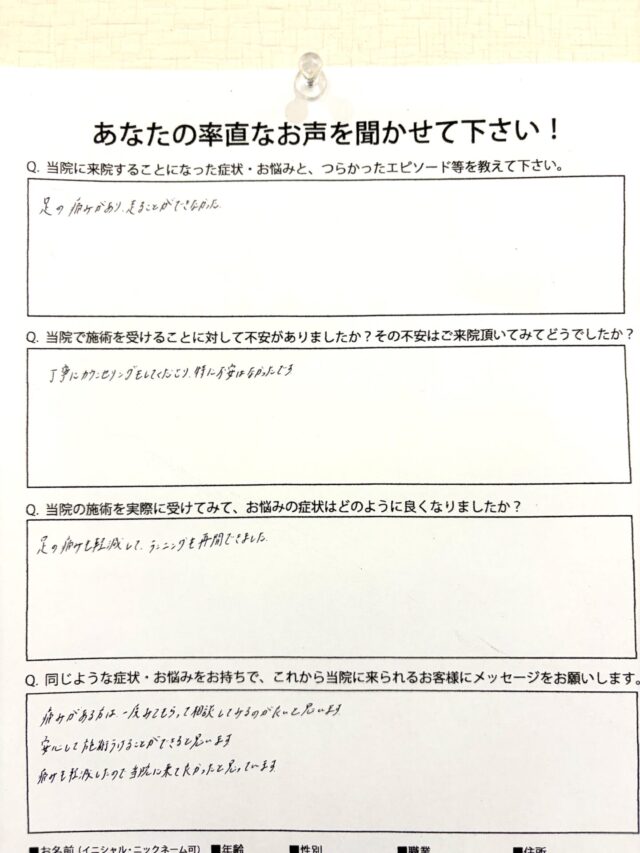 あなたの率直なお声を聞かせて下さい！
Q. 当院に来院することになった症状・お悩みと、つらかったエピソード等を教えて下さい。
足の痛みがあり、走ることができなかった
Q. 当院で施術を受けることに対して不安がありましたか？その不安はご来院頂いてみてどうでしたか？
丁寧にカウンセリングをしてくださり、特に不安はなかったです
Q. 当院の施術を実際に受けてみて、お悩みの症状はどのように良くなりましたか？
足の痛みも軽減して、ランニングも再開できました。
Q. 同じような症状・お悩みをお持ちで、これから当院に来られるお客様にメッセージをお願いします。
痛みがある方は一度みてもらって相談してみるのが良いと思います
安心して施術うけることができると思います
痛みも軽減したので当院に来て良かったと思っています
■お名前（イニシャル・ニックネーム可） ■年齢 ■性別 ■職業 ■住所